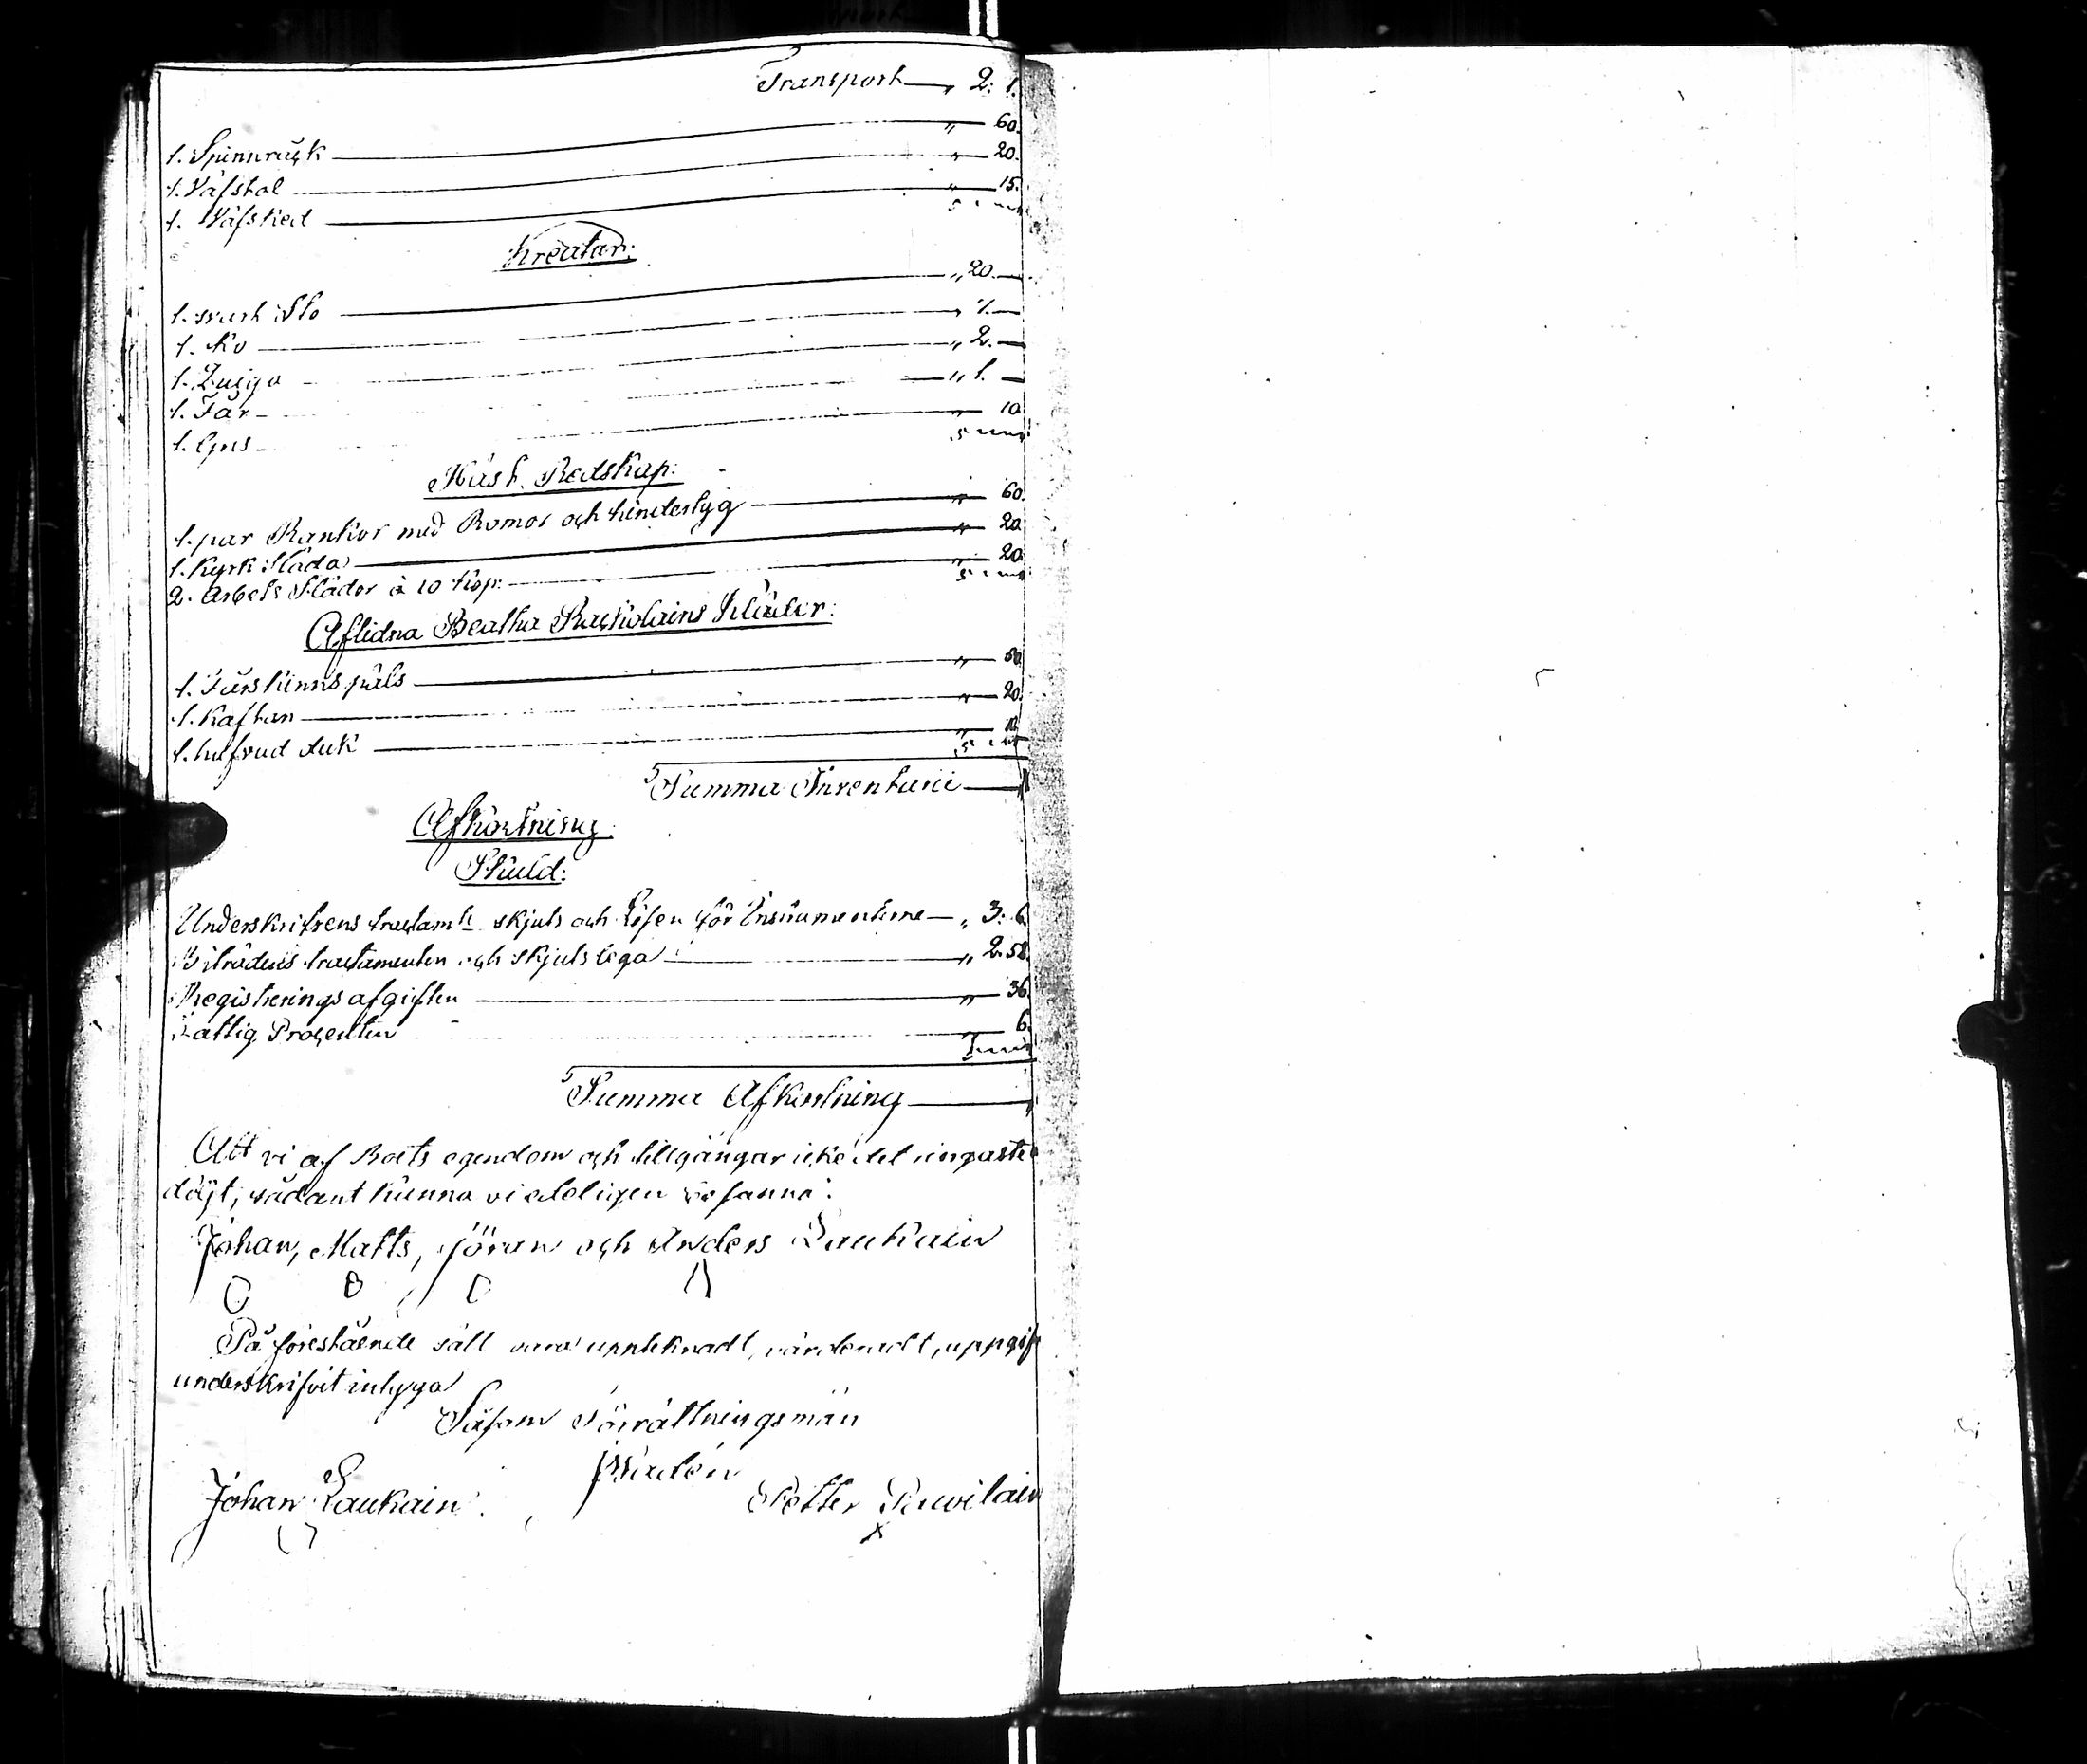 Transport — „ 2: 1.
1. Spinnråck — „ — 60.
1. Väfstol — „ — 20.
1. Väfsked — „ — 15.
Kreatur:
1. svart Sto — „ 20. —
1. Ko — „ 7. —
1. Quiga — „ 2. —
1. Får — „ 1. —
1. Gris — „ — 10
Häst Redskap:
1. par Rankor med Romor och hindertyg — „ — 60.
1. Kyrk Släda — „ — 20.
2. Arbets Slädor à 10 Kop: — „ — 20.
Aflidna Beatha Kläder:
1. Fårskinns päls — „ — 50.
1. Kaftan — „ — 20.
1. hufvud duk — „ —
Summa Inventarii —
Afkortning:
Skuld:
Underskrifvens tractamte skjuts och Lösen för — „ 3: 6.
Biträdens tractamenten och skjutslega — „ 2. 58.
Registreringsafgiften — „ — 36.
Fattig Procenten — 6.
Summa Afkortning —
Att vi af Boets egendom och tillgångar icke det ringaste
döljt, sådant kunna vi edeligen besanna:
Johan, Matts, Jöran och Anders Laukain
På förestående sätt vara uppteknadt, värderadt, uppgif
underskrifvit intyga
Såsom Förrättningsmän
Johan Laukain.
Petter